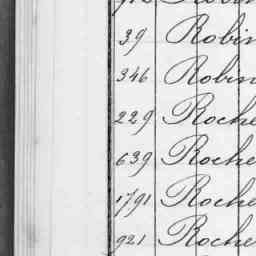 39 Robin
346 Robin
229 Roche
639 Roche
1791 Roche
921 Roche